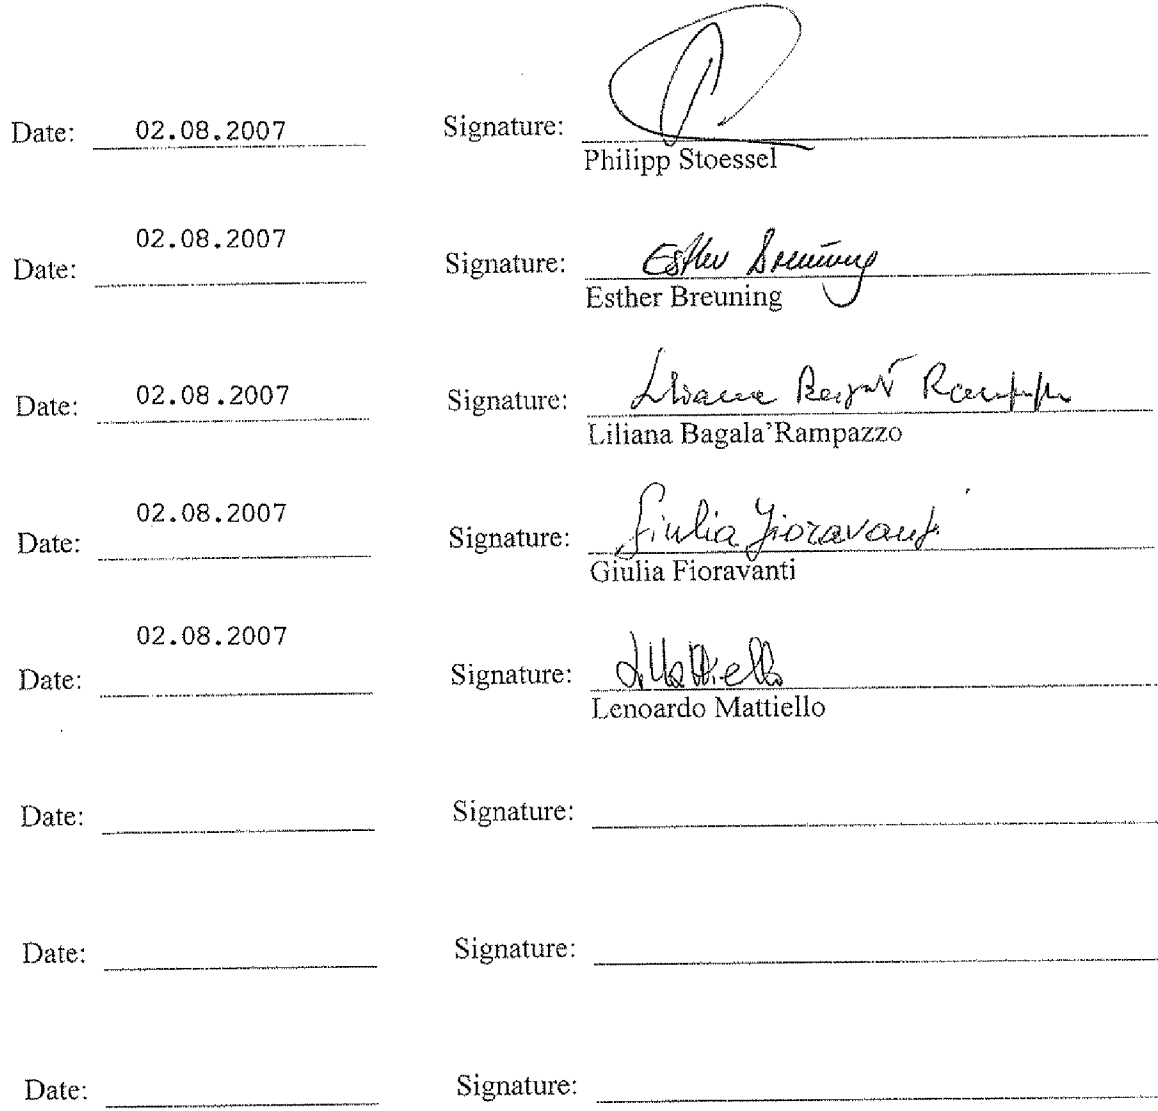 Date: 02.08.2007 Signature:
Philipp Stoessel
02.08.2007
Date: Signature: Esther Breuning
Esther Breuning
Date: 02.08.2007 Signature: Liliana Bagala' Rampazzo
Liliana Bagala'Rampazzo
02.08.2007
Date: Signature: Giulia Fioravanti
Giulia Fioravanti
02.08.2007
Date: Signature: L. Mattiello
Lenoardo Mattiello
Date: Signature:
Date: Signature:
Date: Signature: